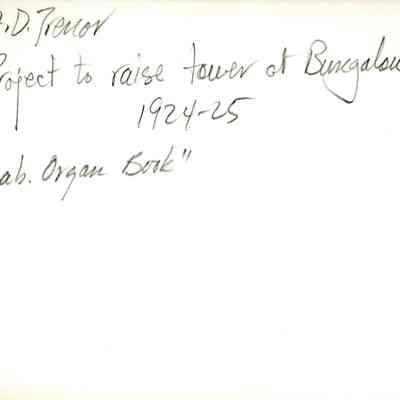 .D. Trenor
roject to raise tower at Bungalow
1924-25
ab. Organ Book"